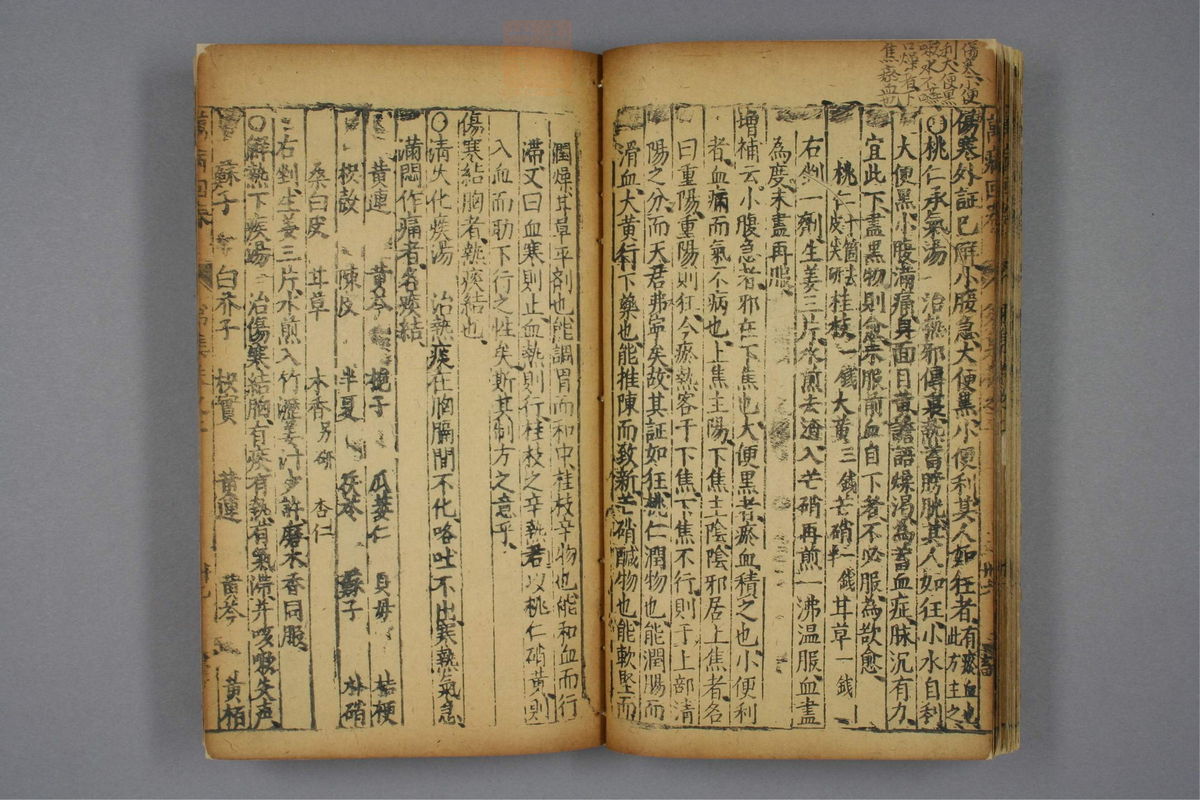 傷寒小便
利大便黒
焦瘀血也
傷寒外証已解小腹急大便黑小便利其人如狂者有瘀血也
此方主之
〇桃仁承氣湯 治熱邪傳裏熱蓄膀胱其人如狂小水自利
大便黑小腹滿痛身面目黃譫語燥渴為蓄血症脉沉有力
宜此下盡黑物則愈未服前血自下者不必服為欲愈
桃仁十箇去皮尖研 桂枝一錢 大黃三錢 芒硝一錢半 甘草一錢
右剉一劑生姜三片水煎去渣入芒硝再煎一沸溫服血盡
為度未盡再服
增補云小腹急者邪在下焦也大便黑者瘀血積之也小便利
者血病而氣不病也上焦主陽下焦主陰陰邪居上焦者名
曰重陽重陽則狂今瘀熱客于下焦下焦不行則于上部清
陽之分而天君弗寧矣故其証如狂桃仁潤物也能潤腸而
滑血大黃行下藥也能推陳而致新芒硝鹹物也能軟堅而
潤燥甘草平剤也能調胃而和中桂枝辛物也能和血而行
滯又曰血寒則止血熱則行桂枝之辛熱君以桃仁硝黃則
入血而助下行之性矣斯其制方之意乎
傷寒結胸者熱痰結也
〇清火化痰湯 治熱痰在胸膈間不化咯吐不出寒熱氣急
滿悶作痛者名痰結
黃連 黃芩 梔子 瓜蔞仁 貝母 桔梗
枳殼 陳皮 半夏 茯苓 蘇子 朴硝
桑白皮 甘草 木香另研 杏仁
右剉生姜三片水煎入竹瀝姜汁少許磨木香同服
〇解熱下痰湯 治傷寒結胸有痰有熱有氣滯并咳嗽失声
蘇子 白芥子 枳實 黃連 黃芩 黃栢
萬病回春